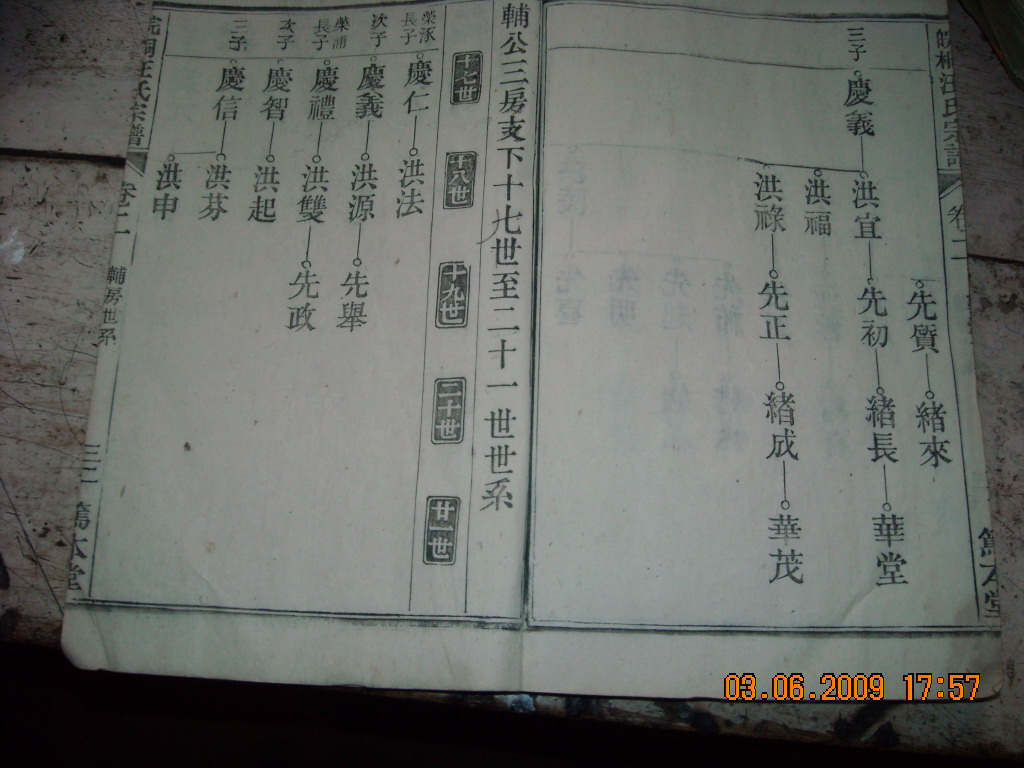 三子
慶義
洪宜
洪福
洪祿
先質
先初
先正
緒來
緒長
緒成
華堂
華茂
篤本堂
輔公三房支下十七世至二十一世世系
十七世
十八世
十九世
二十世
廿一世
榮涿長子
慶仁
洪法
次子
慶義
洪源
先舉
榮浦長子
慶禮
洪雙
先政
次子
慶智
洪起
三子
慶信
洪芬
洪申
汪氏宗譜
卷二
輔房世系
三二
篤本堂
03.06.2009 17:57